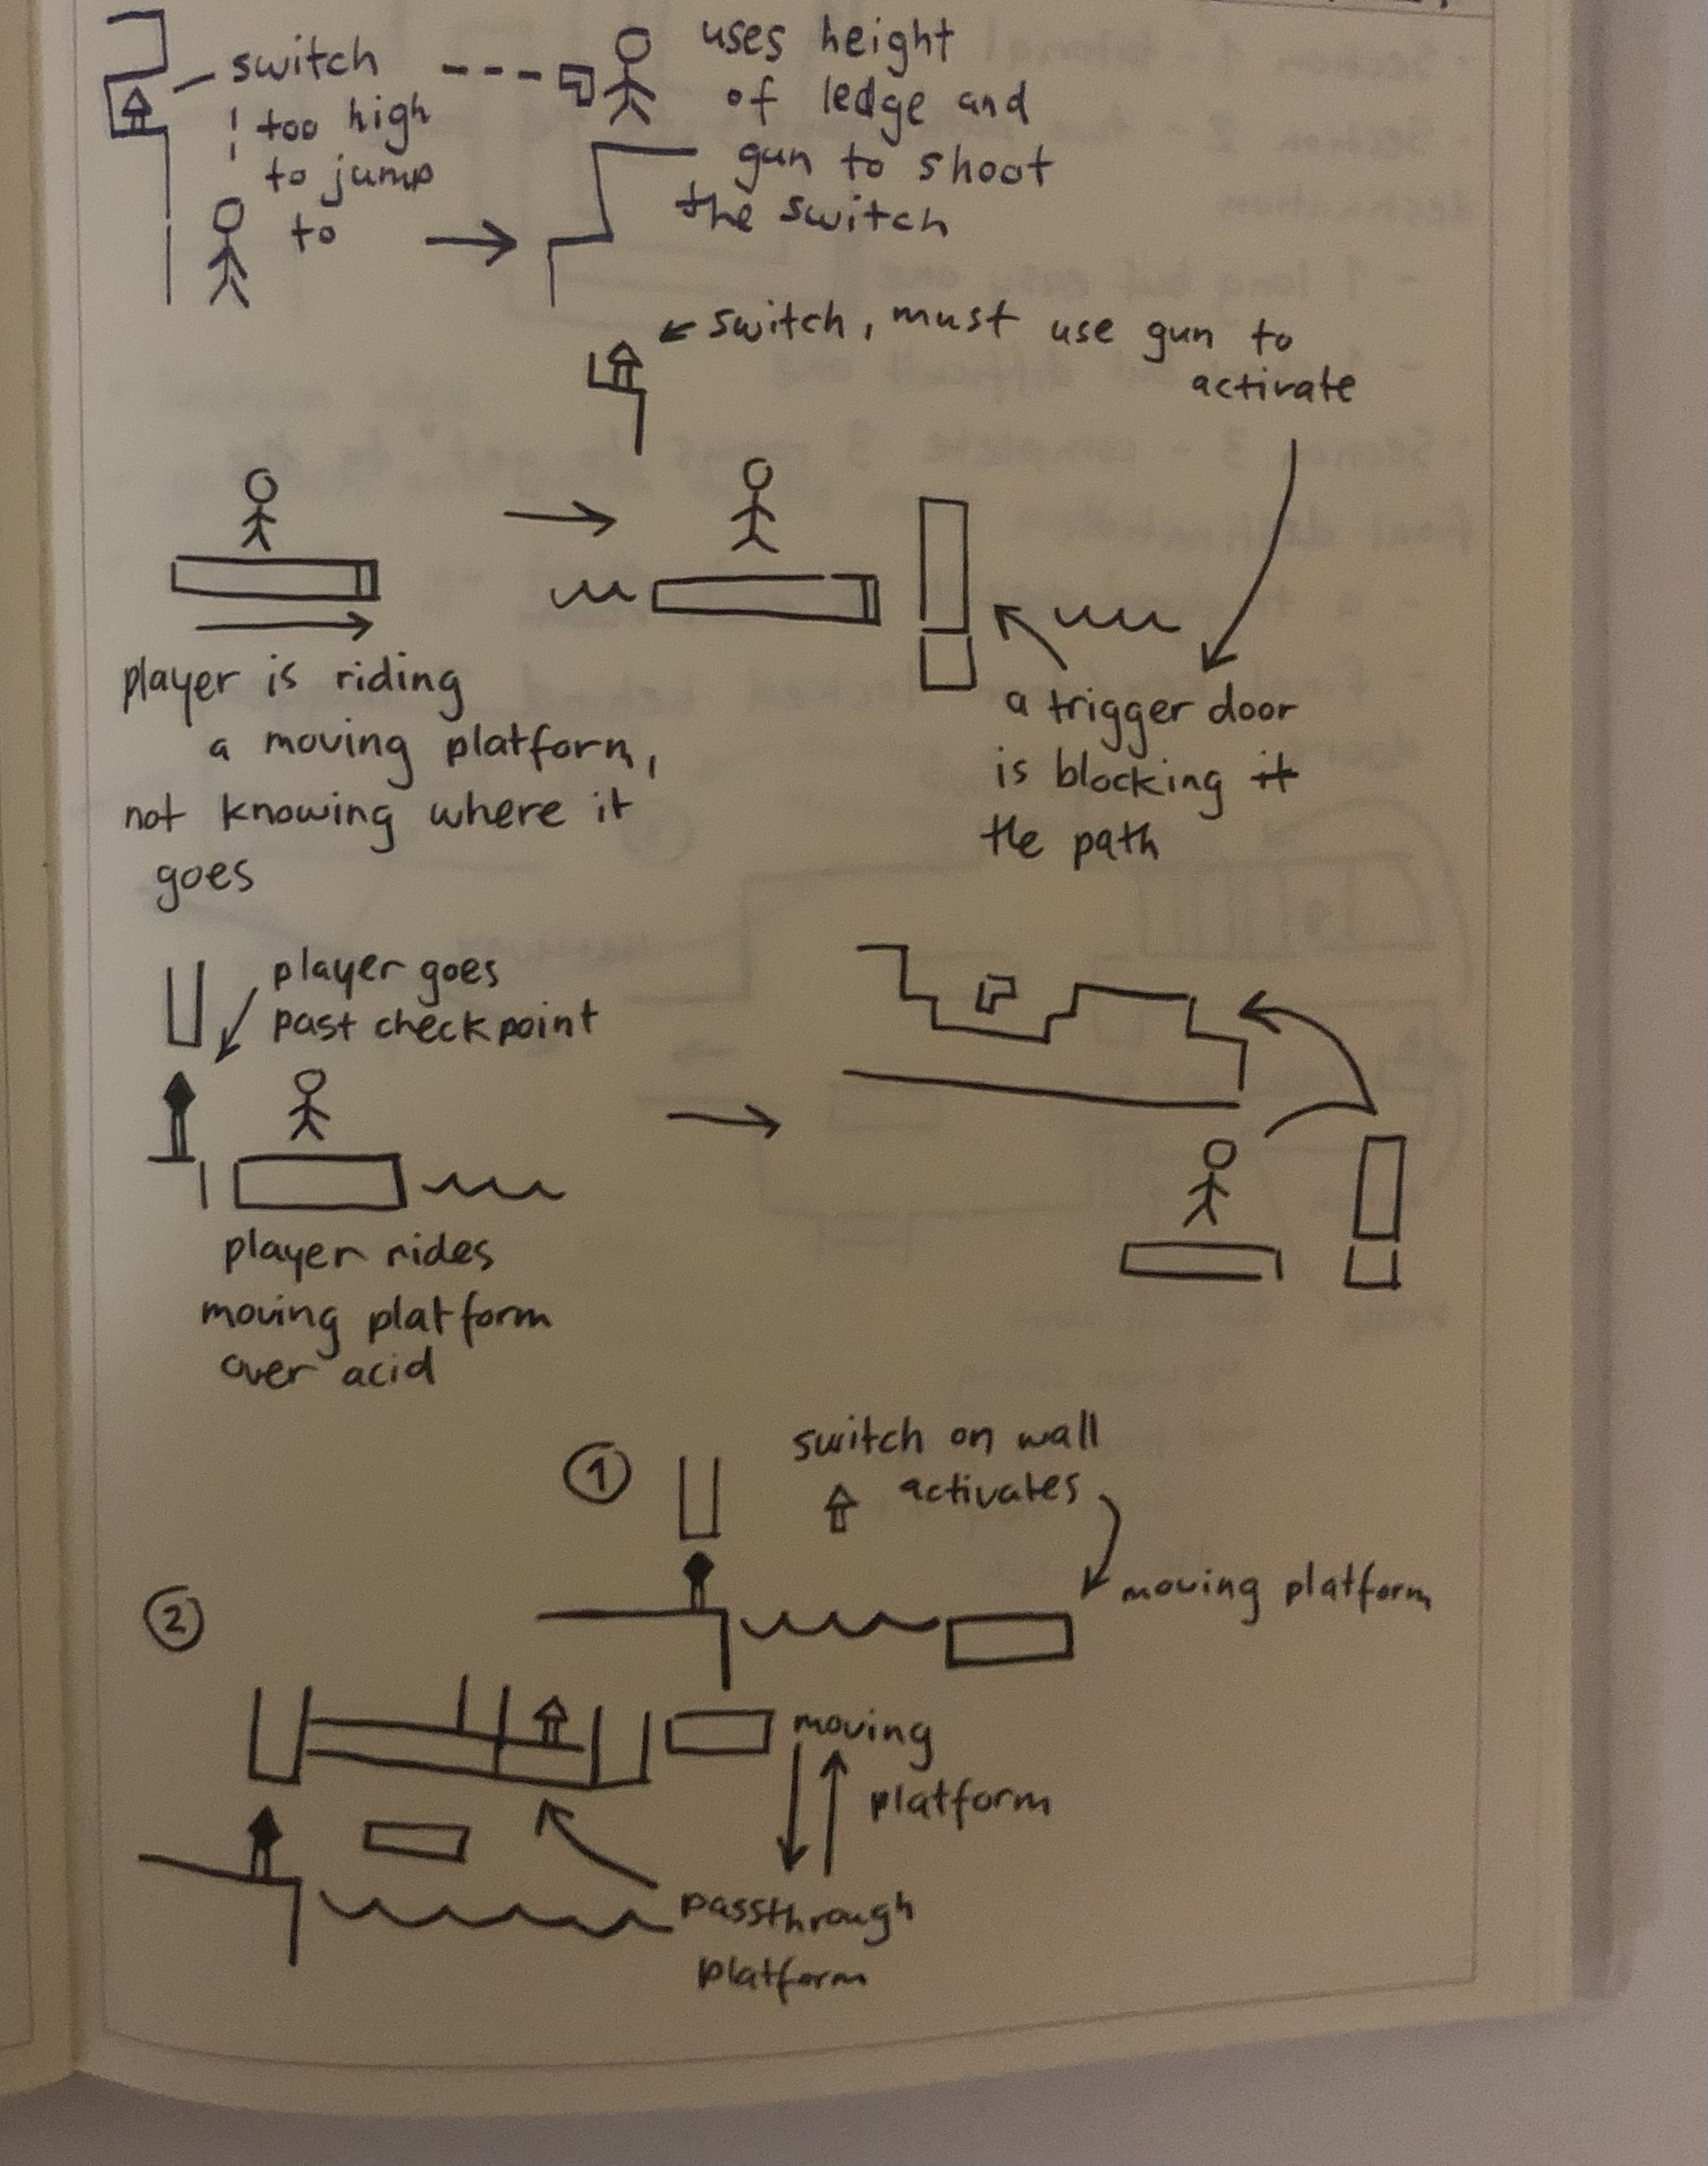 switch
too high
to jump
to
uses height
of ledge and
gun to shoot
the switch
switch, must use gun to
activate
player is riding
a moving platform,
not knowing where it
goes
a trigger door
is blocking it
the path
player goes
past checkpoint
player rides
moving platform
over acid
1
switch on wall
activates
moving platform
2
moving
platform
passthrough
platform